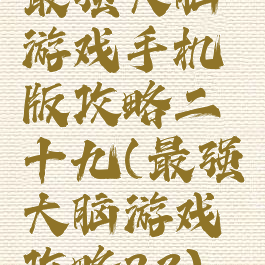 最强大脑
游戏手机
版攻略二
十九(最强
大脑游戏
攻略22)